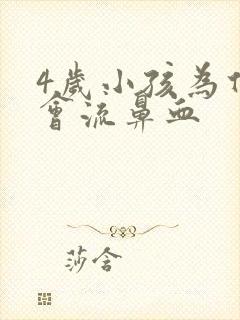 4歲小孩為什
會流鼻血
莎舍